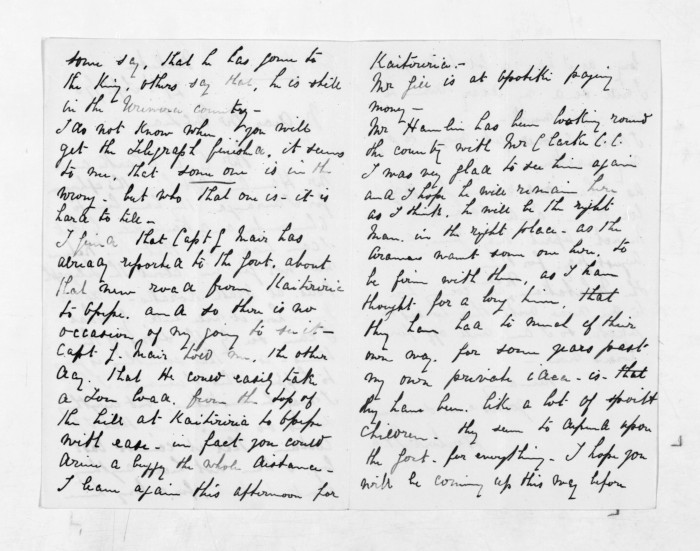 some say, that he has gone to
the King, others say that, he is still
in the Urewera country -
I do not know when, you will
get the Telegraph finished, it seems
to me, that some one is in the
wrong - but who that one is - it is
hard to tell -
I find that Capt G. Mair has
already reported to the Govt. about
that new road from Kaitiriria
to Opepe. and so there is no
occasion of my going to see it -
Capt G. Mair told me, the other
day. that He could easily take
a Ton load. from the top of
the hill at Kaitiriria to Opepe
with ease - in fact you could
drive a buggy the whole distance -
I leave again this afternoon for
Kaitiriria. -
Mr Gill is at Opotiki paying
money -
Mr Hamlin has been looking round
the country with Mr Clarke C.C.
I was very glad to see him again
and I hope he will remain here
as I think. he will be the right
Man. in the right place - as the
Arawas want some one here. to
be firm with them, as I have
thought for a long time, that
they have had to much of their
own way. for some years past
my own private idea - is - that
they have been. like a lot of spoilt
children - they seem to depend upon
the Govt. for everything - I hope you
will be coming up this way before